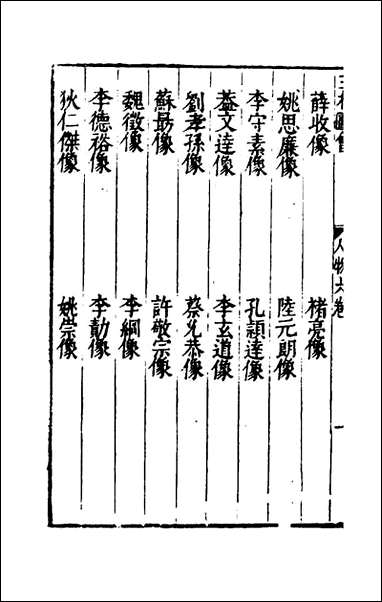 三才圖會 人物六卷 一
薛收像 褚亮像
姚思廉像 陸元朗像
李守素像 孔穎達像
蓋文達像 李玄道像
劉孝孫像 蔡允恭像
蘇勗像 許敬宗像
魏徵像 李綱像
李德裕像 李勣像
狄仁傑像 姚崇像